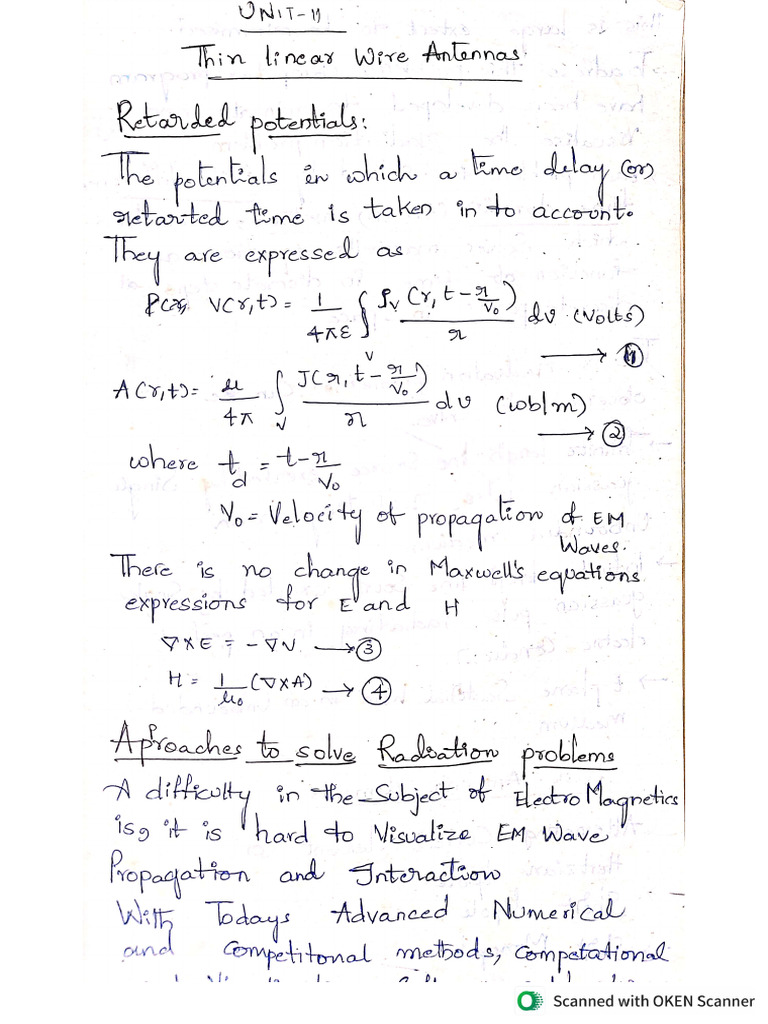 UNIT-II
Thin linear Wire Antennas.
Retarded potentials:
The potentials in which a time delay (or)
retarted time is taken in to account.
They are expressed as
V(r,t) = 1/4πε ∫v ρv (r, t - r/v₀)/r dv (Volts)
→ ①
A(r,t) = μ/4π ∫v J(r, t - r/v₀)/r dv (wb/m)
→ ②
where td = t - r/v₀
V₀ = Velocity of propagation of EM
Waves.
There is no change in Maxwell's equations
expressions for E and H
∇×E = -∇V → ③
H = 1/μ₀ (∇×A) → ④
Approaches to solve Radiation problems
A difficulty in the Subject of Electro Magnetics
is, it is hard to Visualize EM Wave
Propagation and Interaction
With Todays Advanced Numerical
and Competitonal methods, Competational
Scanned with OKEN Scanner